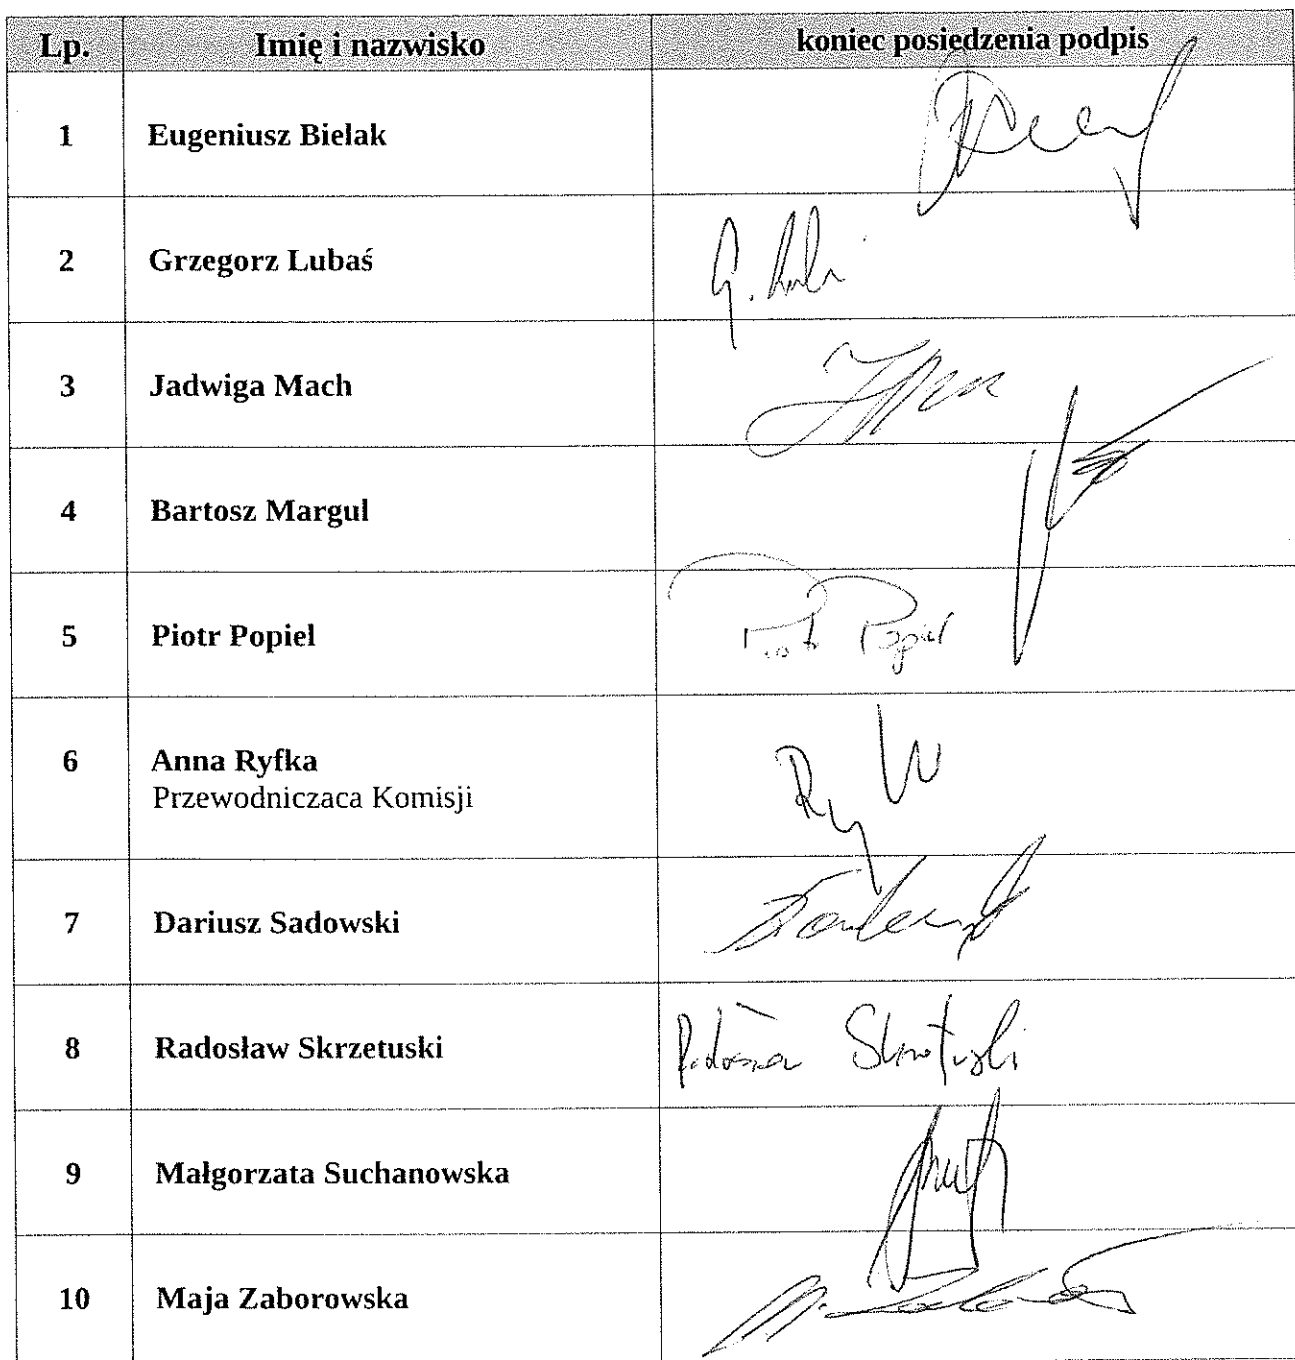 Lp. Imię i nazwisko koniec posiedzenia podpis
1 Eugeniusz Bielak
2 Grzegorz Lubaś G.
3 Jadwiga Mach
4 Bartosz Margul
5 Piotr Popiel Piotr Popiel
6 Anna Ryfka
Przewodniczaca Komisji
7 Dariusz Sadowski
8 Radosław Skrzetuski
9 Małgorzata Suchanowska
10 Maja Zaborowska